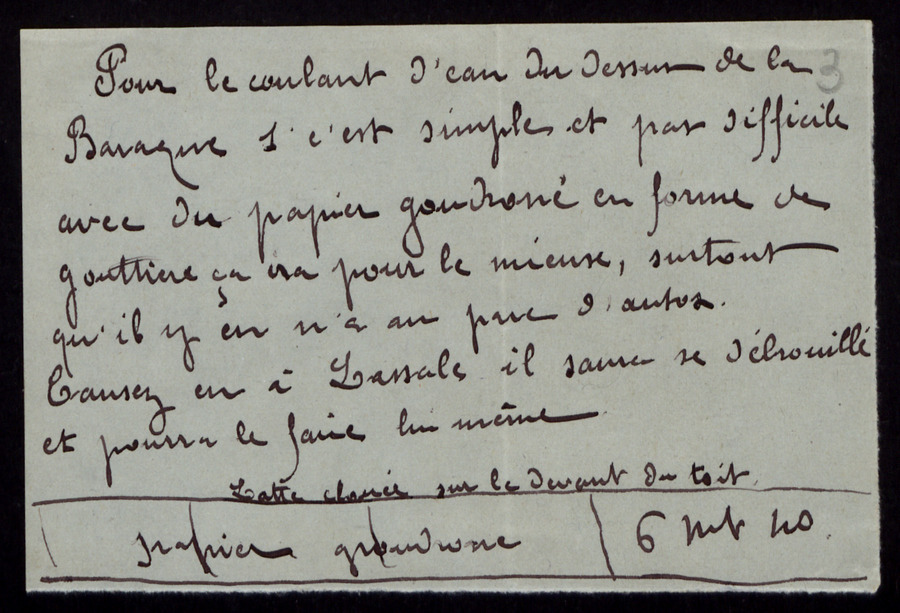 Pour le coulant d'eau du dessus de la
3
Baraque s' c'est simple et pas difficile
avec du papier goudronné en forme de
gouttiere ça ira pour le mieuse, surtout
qu'il y en n'a au parc d'autos.
Causez en à Lassale, il saura se débrouillé
et pourra le faire lui même
Latte clouée sur le devant du toit
papier goudronne 6 40